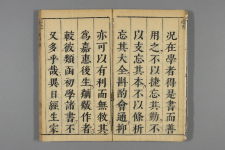 况在學者得是書而善
用之不以捷忘其勤不
以支忘其本不以條析
忘其大全斟酌會通抑
亦可以有利而無敝其
為嘉惠後生
較彼類函初學諸書不
又多乎哉異日經生家